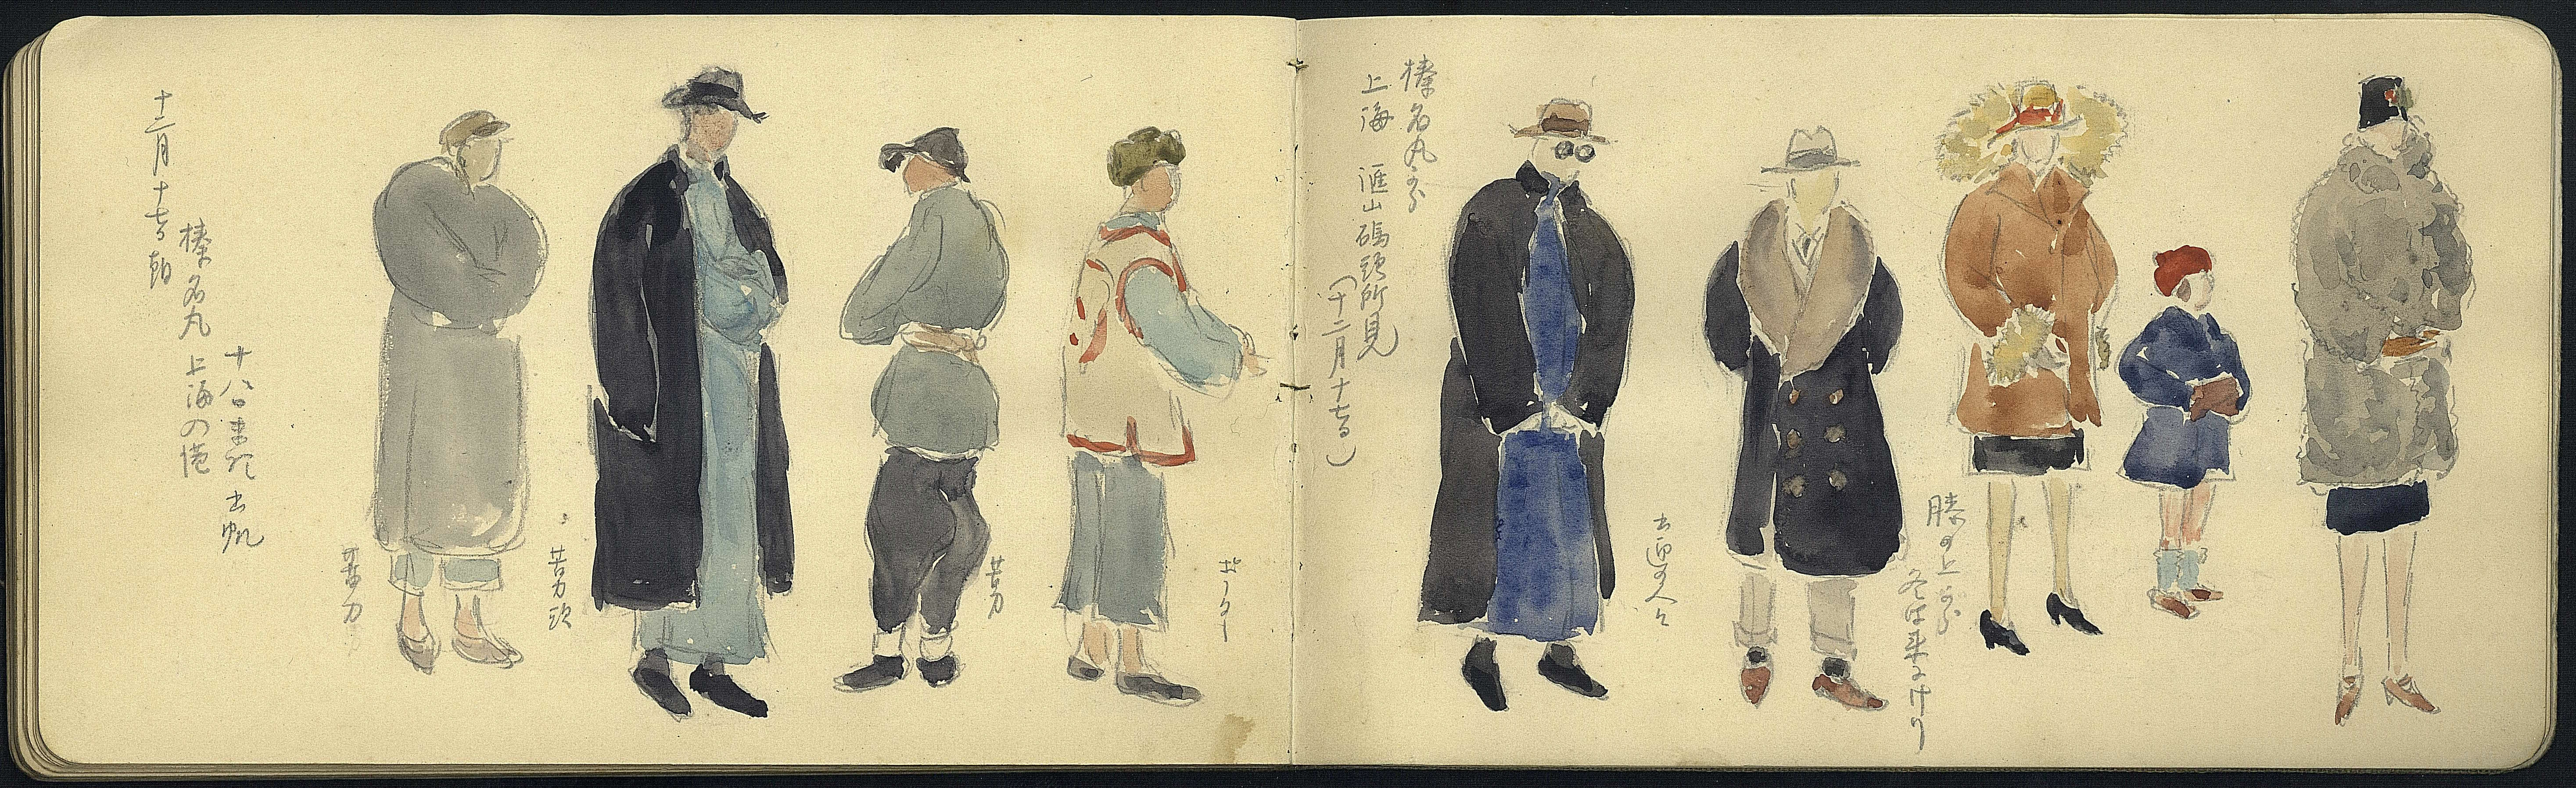 十二月十七日朝
榛名丸 上海の港
十八日未明出帆
苦力
苦力頭
苦力
ぽーたー
榛名丸より
上海 滙山碼頭所見
(十二月十七日)
出迎の人々
膝の上より
冬は来にけり